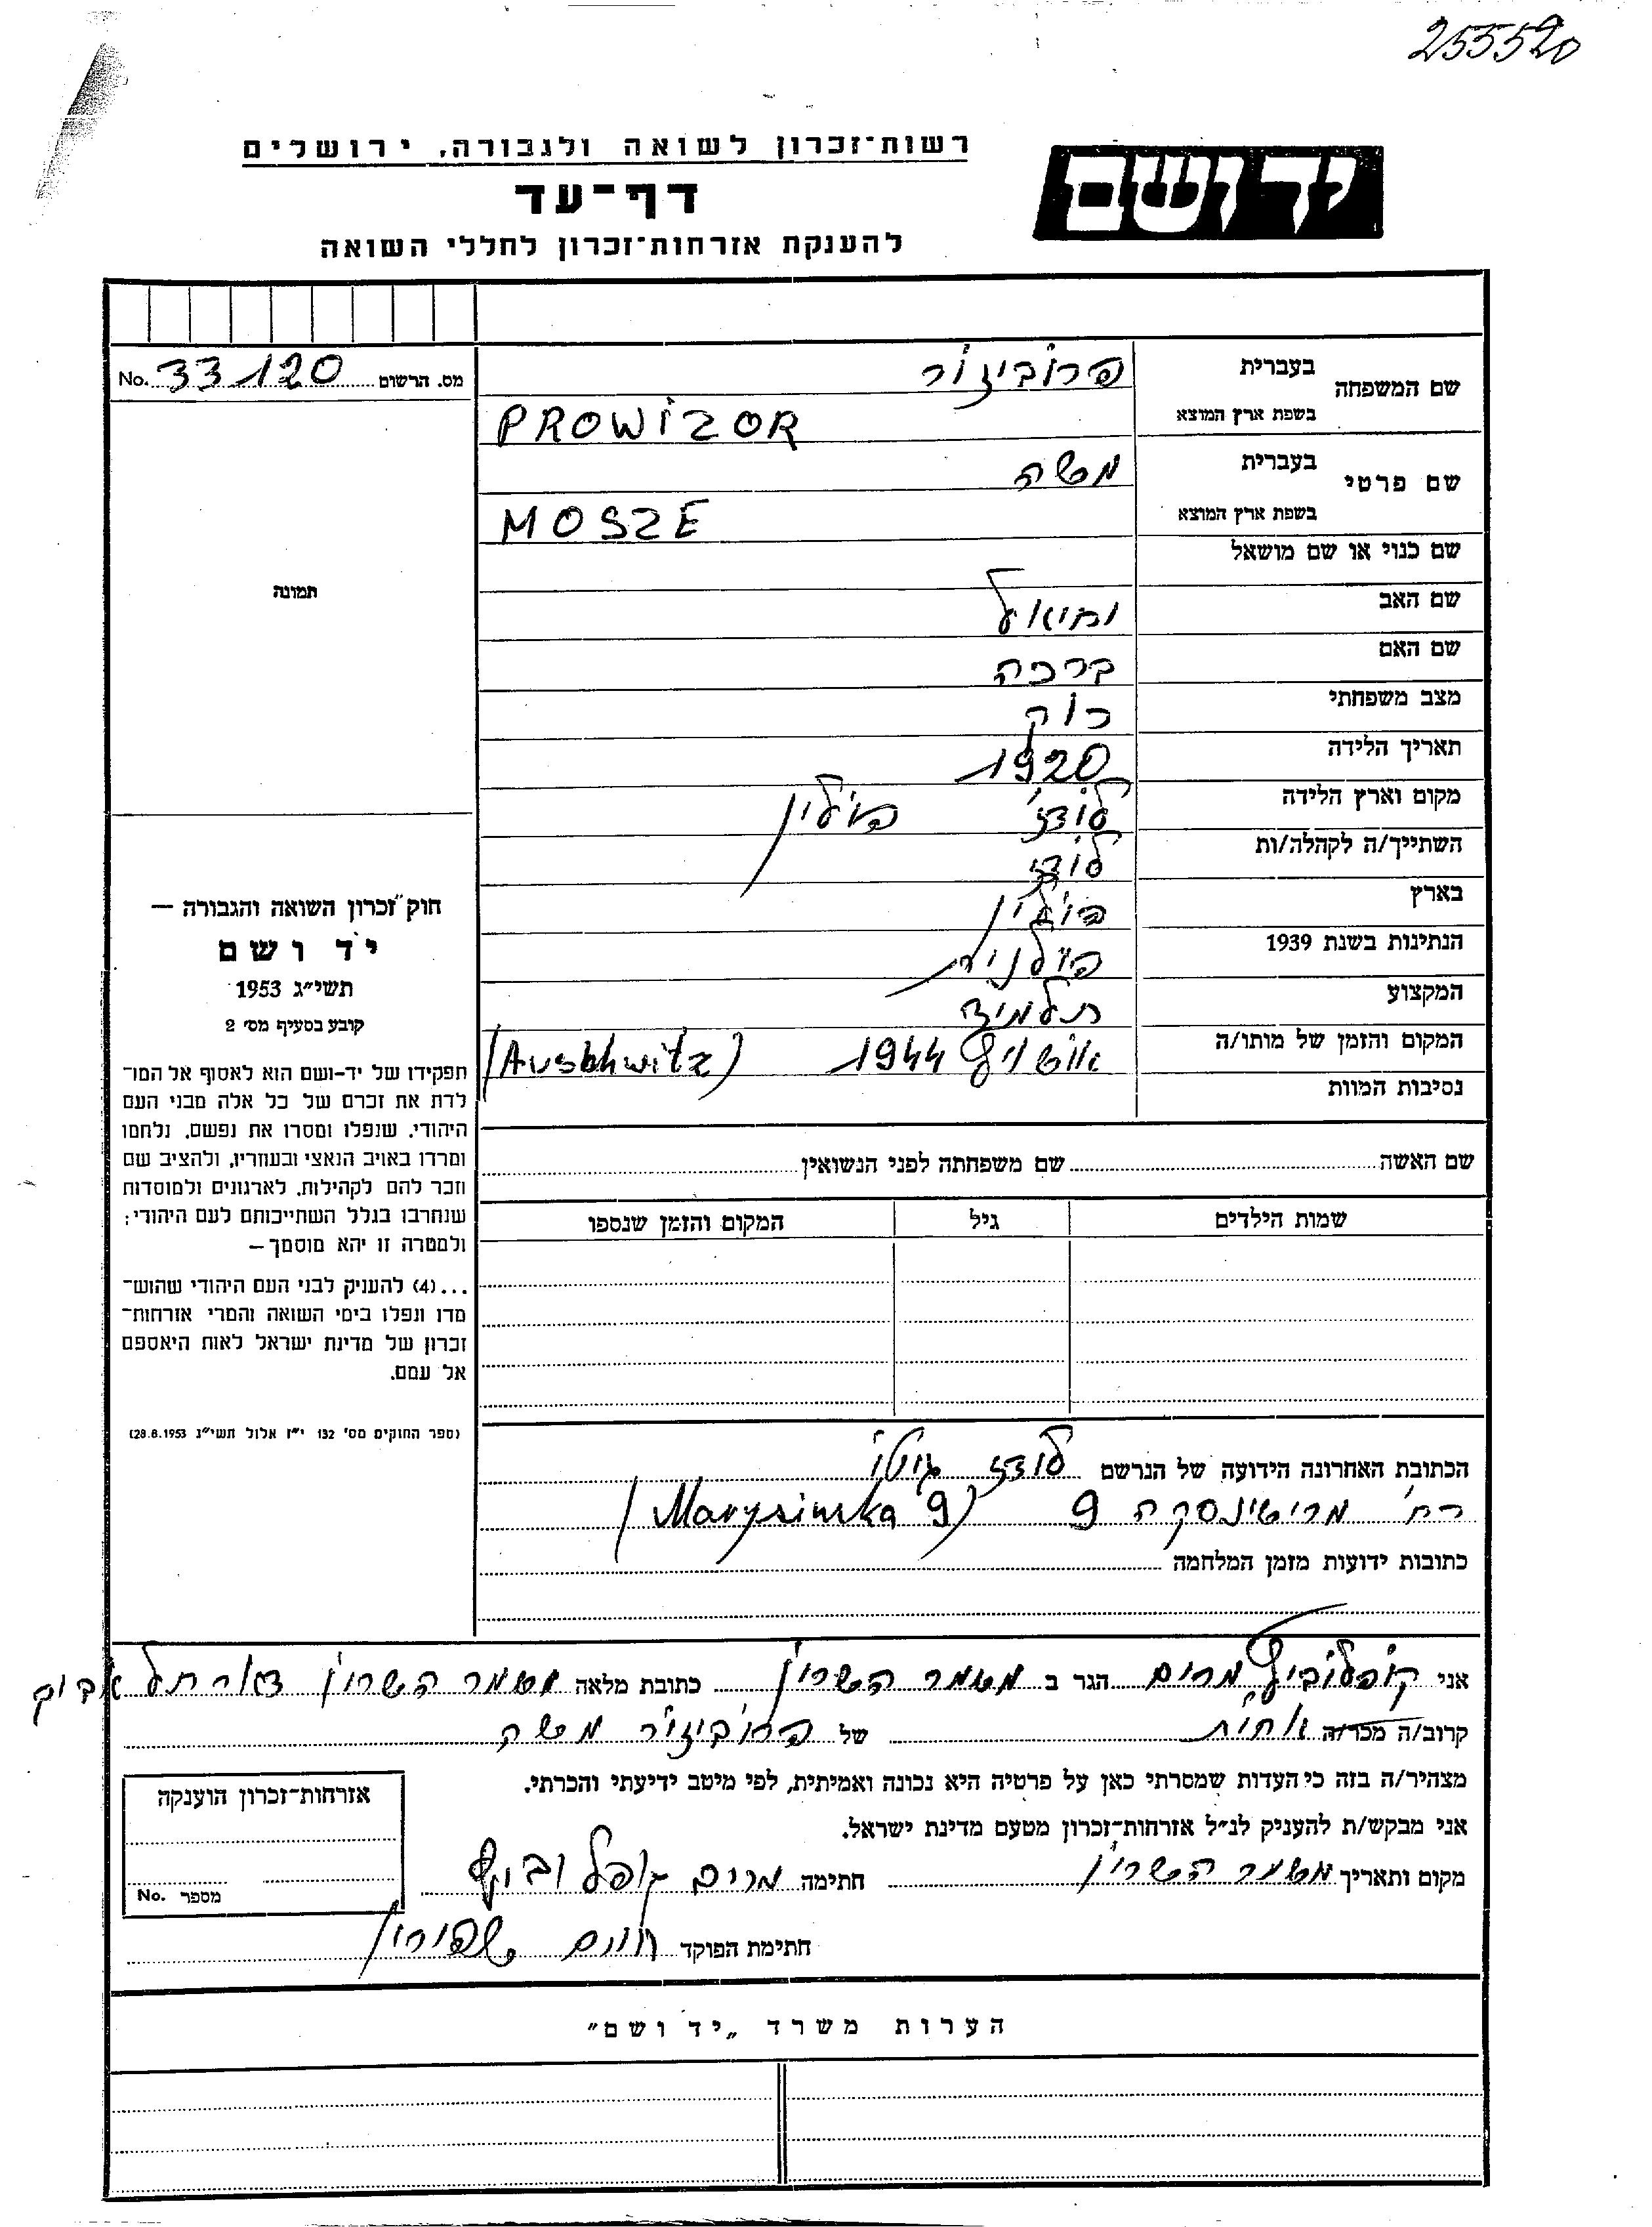 255520
רשות־זכרון לשואה ולגבורה, ירושלים
יד ושם
דף־עד
להענקת אזרחות־זכרון לחללי השואה
מס. הרשום 33120 No.
שם המשפחה
בעברית פרוביזור
בשפת ארץ המוצא PROWIZOR
שם פרטי
בעברית משה
בשפת ארץ המוצא MOSZE
שם כנוי או שם מושאל
שם האב
שם האם ברכה
מצב משפחתי רווק
תאריך הלידה 1920
מקום וארץ הלידה לודז' פולין
השתייך/ה לקהלה/ות לודז'
בארץ פולין
הנתינות בשנת 1939 פולנית
המקצוע תלמיד
המקום והזמן של מותו/ה אושויץ 1944 (Ausbhwitz)
נסיבות המוות
תמונה
חוק זכרון השואה והגבורה —
יד ושם
תשי״ג 1953
קובע בסעיף מס׳ 2
תפקידו של יד-ושם הוא לאסוף אל המו־
לדת את זכרם של כל אלה מבני העם
היהודי, שנפלו ומסרו את נפשם, נלחמו
ומרדו באויב הנאצי ובעוזריו, ולהציב שם
וזכר להם לקהילות, לארגונים ולמוסדות
שנחרבו בגלל השתייכותם לעם היהודי;
ולמטרה זו יהא מוסמך —
...(4) להעניק לבני העם היהודי שהוש־
מדו ונפלו בימי השואה והמרי אזרחות־
זכרון של מדינת ישראל לאות היאספם
אל עמם.
(ספר החוקים מס׳ 132 י״ז אלול תשי״ג 28.8.1953)
שם האשה שם משפחתה לפני הנשואין
שמות הילדים גיל המקום והזמן שנספו
הכתובת האחרונה הידועה של הנרשם לודז גיטו
רח' מרישינסקה 9 (Marysinska 9)
כתובות ידועות מזמן המלחמה
אני קופלוביץ מרים הגר ב משמר השרון כתובת מלאה משמר השרון דאר תל אביב
קרוב/ה מכר/ה אחות של פרוביזור משה
מצהיר/ה בזה כי העדות שמסרתי כאן על פרטיה היא נכונה ואמיתית, לפי מיטב ידיעתי והכרתי.
אני מבקש/ת להעניק לנ״ל אזרחות־זכרון מטעם מדינת ישראל.
מקום ותאריך משמר השרון חתימה מרים קופלוביץ
חתימת הפוקד חיים
אזרחות־זכרון הוענקה
מספר No.
הערות משרד „יד ושם״